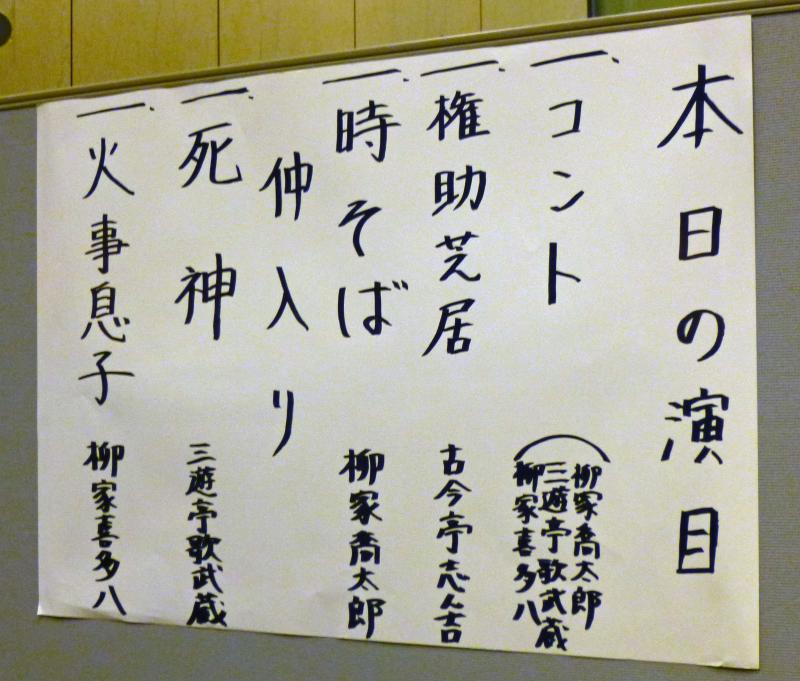 本日の演目
一、コント
柳家喬太郎
三遊亭歌武蔵
柳家喜多八
一、権助芝居
古今亭志ん吉
一、時そば
柳家喬太郎
仲入り
一、死神
三遊亭歌武蔵
一、火事息子
柳家喜多八